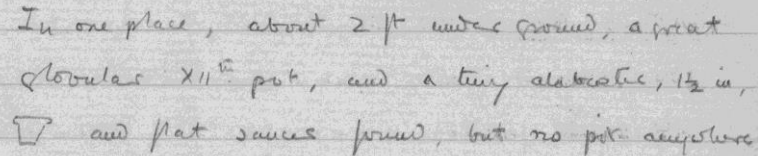 In one place, about 2 ft under ground, a great
globular XIIth pot, and a tiny alabaster, 1½ in,
and flat saucer found, but no pit anywhere